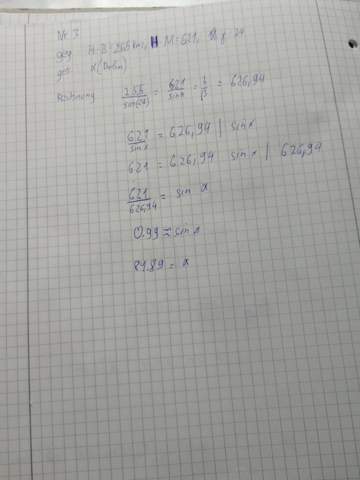 Nr. 3
geg: H-B=255 km, H-M=621, ∡ γ 24
ges: α (Berlin)
Rechnung 255/sin(24) = 621/sin α = b/β = 626,94
621/sin α = 626,94 | sin α
621 = 626,94 sin α | 626,94
621/626,94 = sin α
0.99 ≈ sin α
81,89 = α